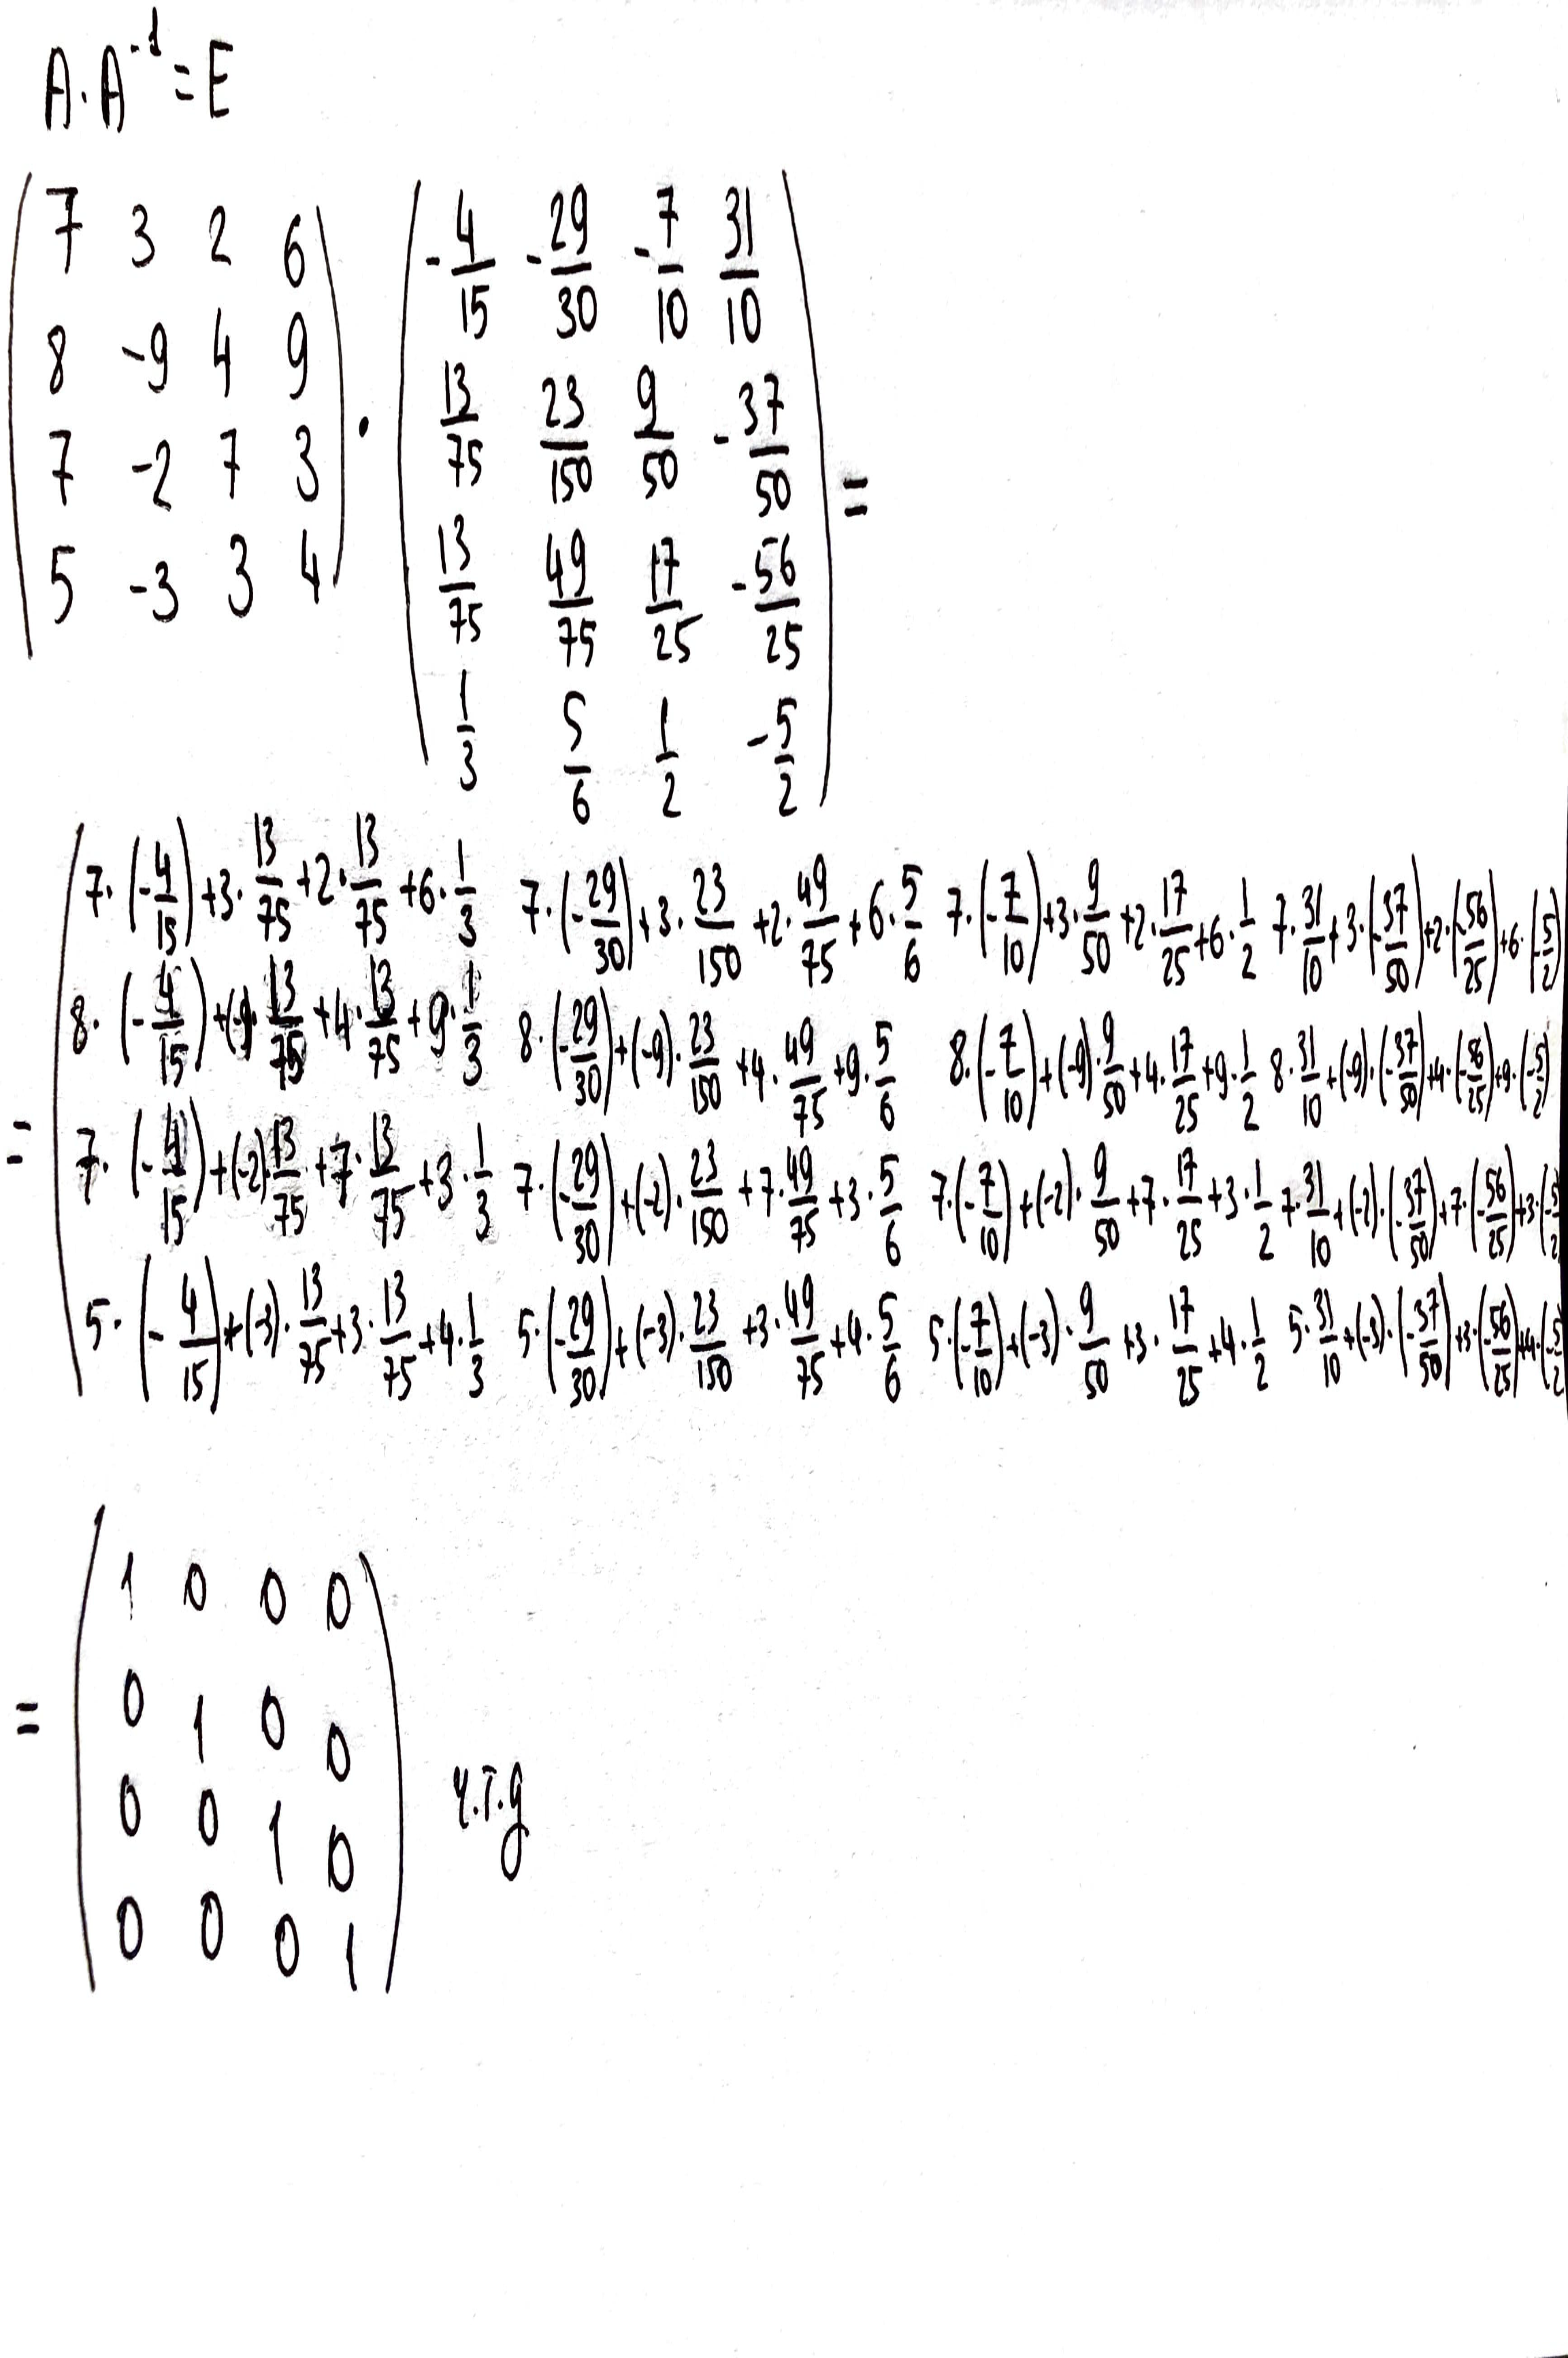 A·A⁻¹=E
7 3 2 6 -4/15 -29/30 -7/10 31/10
8 -9 4 9 13/75 23/150 9/50 -37/50
7 -2 7 3 · 13/75 49/75 17/25 -56/25 =
5 -3 3 4 1/3 5/6 1/2 -5/2
7·(-4/15)+3·13/75+2·13/75+6·1/3 7·(-29/30)+3·23/150+2·49/75+6·5/6 7·(-7/10)+3·9/50+2·17/25+6·1/2 7·31/10+3·(-37/50)+2·(-56/25)+6·(-5/2)
8·(-4/15)+(-9)·13/75+4·13/75+9·1/3 8·(-29/30)+(-9)·23/150+4·49/75+9·5/6 8·(-7/10)+(-9)·9/50+4·17/25+9·1/2 8·31/10+(-9)·(-37/50)+4·(-56/25)+9·(-5/2)
= 7·(-4/15)+(-2)13/75+7·13/75+3·1/3 7·(-29/30)+(-2)·23/150+7·49/75+3·5/6 7·(-7/10)+(-2)·9/50+7·17/25+3·1/2 7·31/10+(-2)·(-37/50)+7·(-56/25)+3·(-5/2)
5·(-4/15)+(-3)·13/75+3·13/75+4·1/3 5·(-29/30)+(-3)·23/150+3·49/75+4·5/6 5·(-7/10)+(-3)·9/50+3·17/25+4·1/2 5·31/10+(-3)·(-37/50)+3·(-56/25)+4·(-5/2)
1 0 0 0
= 0 1 0 0
0 0 1 0 ч.т.д
0 0 0 1